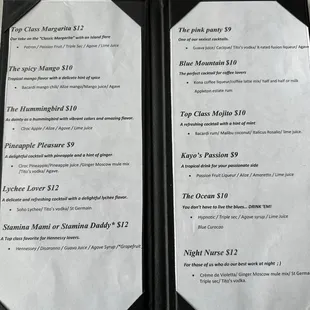 Top Class Margarita $12
Our take on the "Classic Margarita" with an Island flare
Patron / Passion Fruit / Triple Sec / Agave / Lime Juice
The spicy Mango $10
Tropical mango flavor with a delicate hint of spice.
Bacardi mango chili/ Aloe mango/Mango juice/ Agave
The Hummingbird $10
As dainty as a hummingbird with vibrant colors and amazing flavor.
Ciroc Apple / Aloe / Agave / Lime juice
Pineapple Pleasure $9
A delightful cocktail with pineapple and a hint of ginger.
Ciroc Pineapple/Pineapple Juice/Ginger Moscow mule mix
(Tito's vodka)/ Agave
Lychee Lover $12
A delicate and refreshing cocktail with a delightful lychee flavor.
Soho Lychee/ Tito's vodka/ St Germain
Stamina Mami or Stamina Daddy* $12
A Top Class favorite for Hennessy lovers.
Hennessy / Disaronno / Guava Juice / Agave Syrup /*Grapefruit
The pink panty $9
One of our sexiest cocktails.
Guava juice/ Carouse/ Tito's vodka/ X rated fusion liqueur/ Agave
Blue Mountain $10
The perfect cocktail for coffee lovers
Kona coffee liqueur/coffee latte mix/ half and half or milk
Appleton estate rum
Top Class Mojito $10
A refreshing cocktail with a hint of mint
Bacardi rum/ Malibu coconut/ Italicus Rosolio/ lime juice
Kayo's Passion $9
A tropical drink for your passionate side
Passion Fruit Liqueur / Aloe / Amaretto / Lime juice
The Ocean $10
You don't have to live the blues... DRINK 'EM!
Hypnotic / Triple sec / Agave syrup / Lime juice
Blue Curacao
Night Nurse $12
For those of us who do our best work at night ; )
Crème de Violette/ Ginger Moscow mule mix/ St Germa
Triple sec/ Tito's vodka.